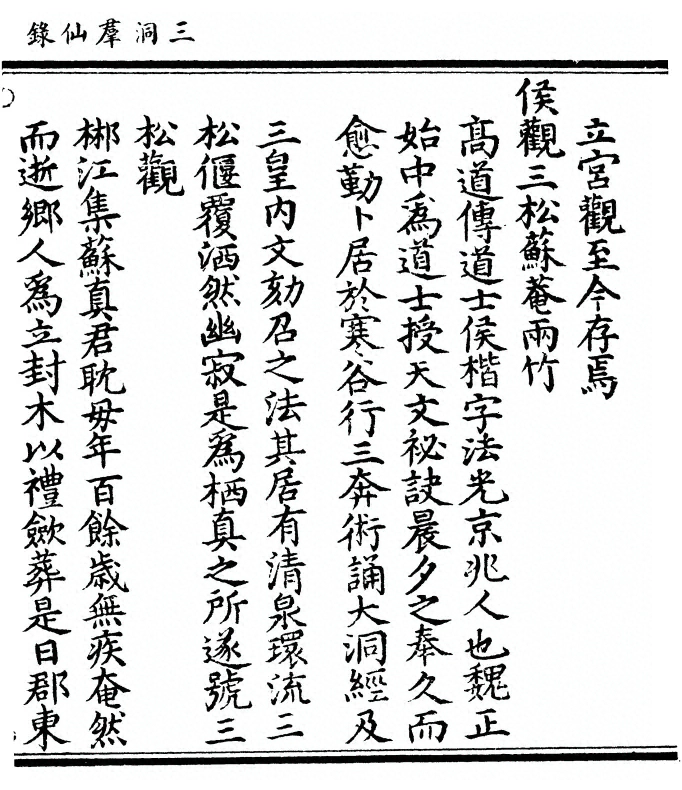 三洞羣仙錄
立宮觀至今存焉
侯觀三松蘇菴兩竹
高道傳道士侯楷字法光京兆人也魏正
始中爲道士授天文祕訣晨夕之奉久而
愈勤卜居於寒谷行三奔術誦大洞經及
三皇内文劾召之法其居有清泉環流三
松偃覆洒然幽寂是爲栖真之所遂號三
松觀
郴江集蘇真君耽毋年百餘歲無疾奄然
而逝鄉人爲立封木以禮歛葬是日郡東